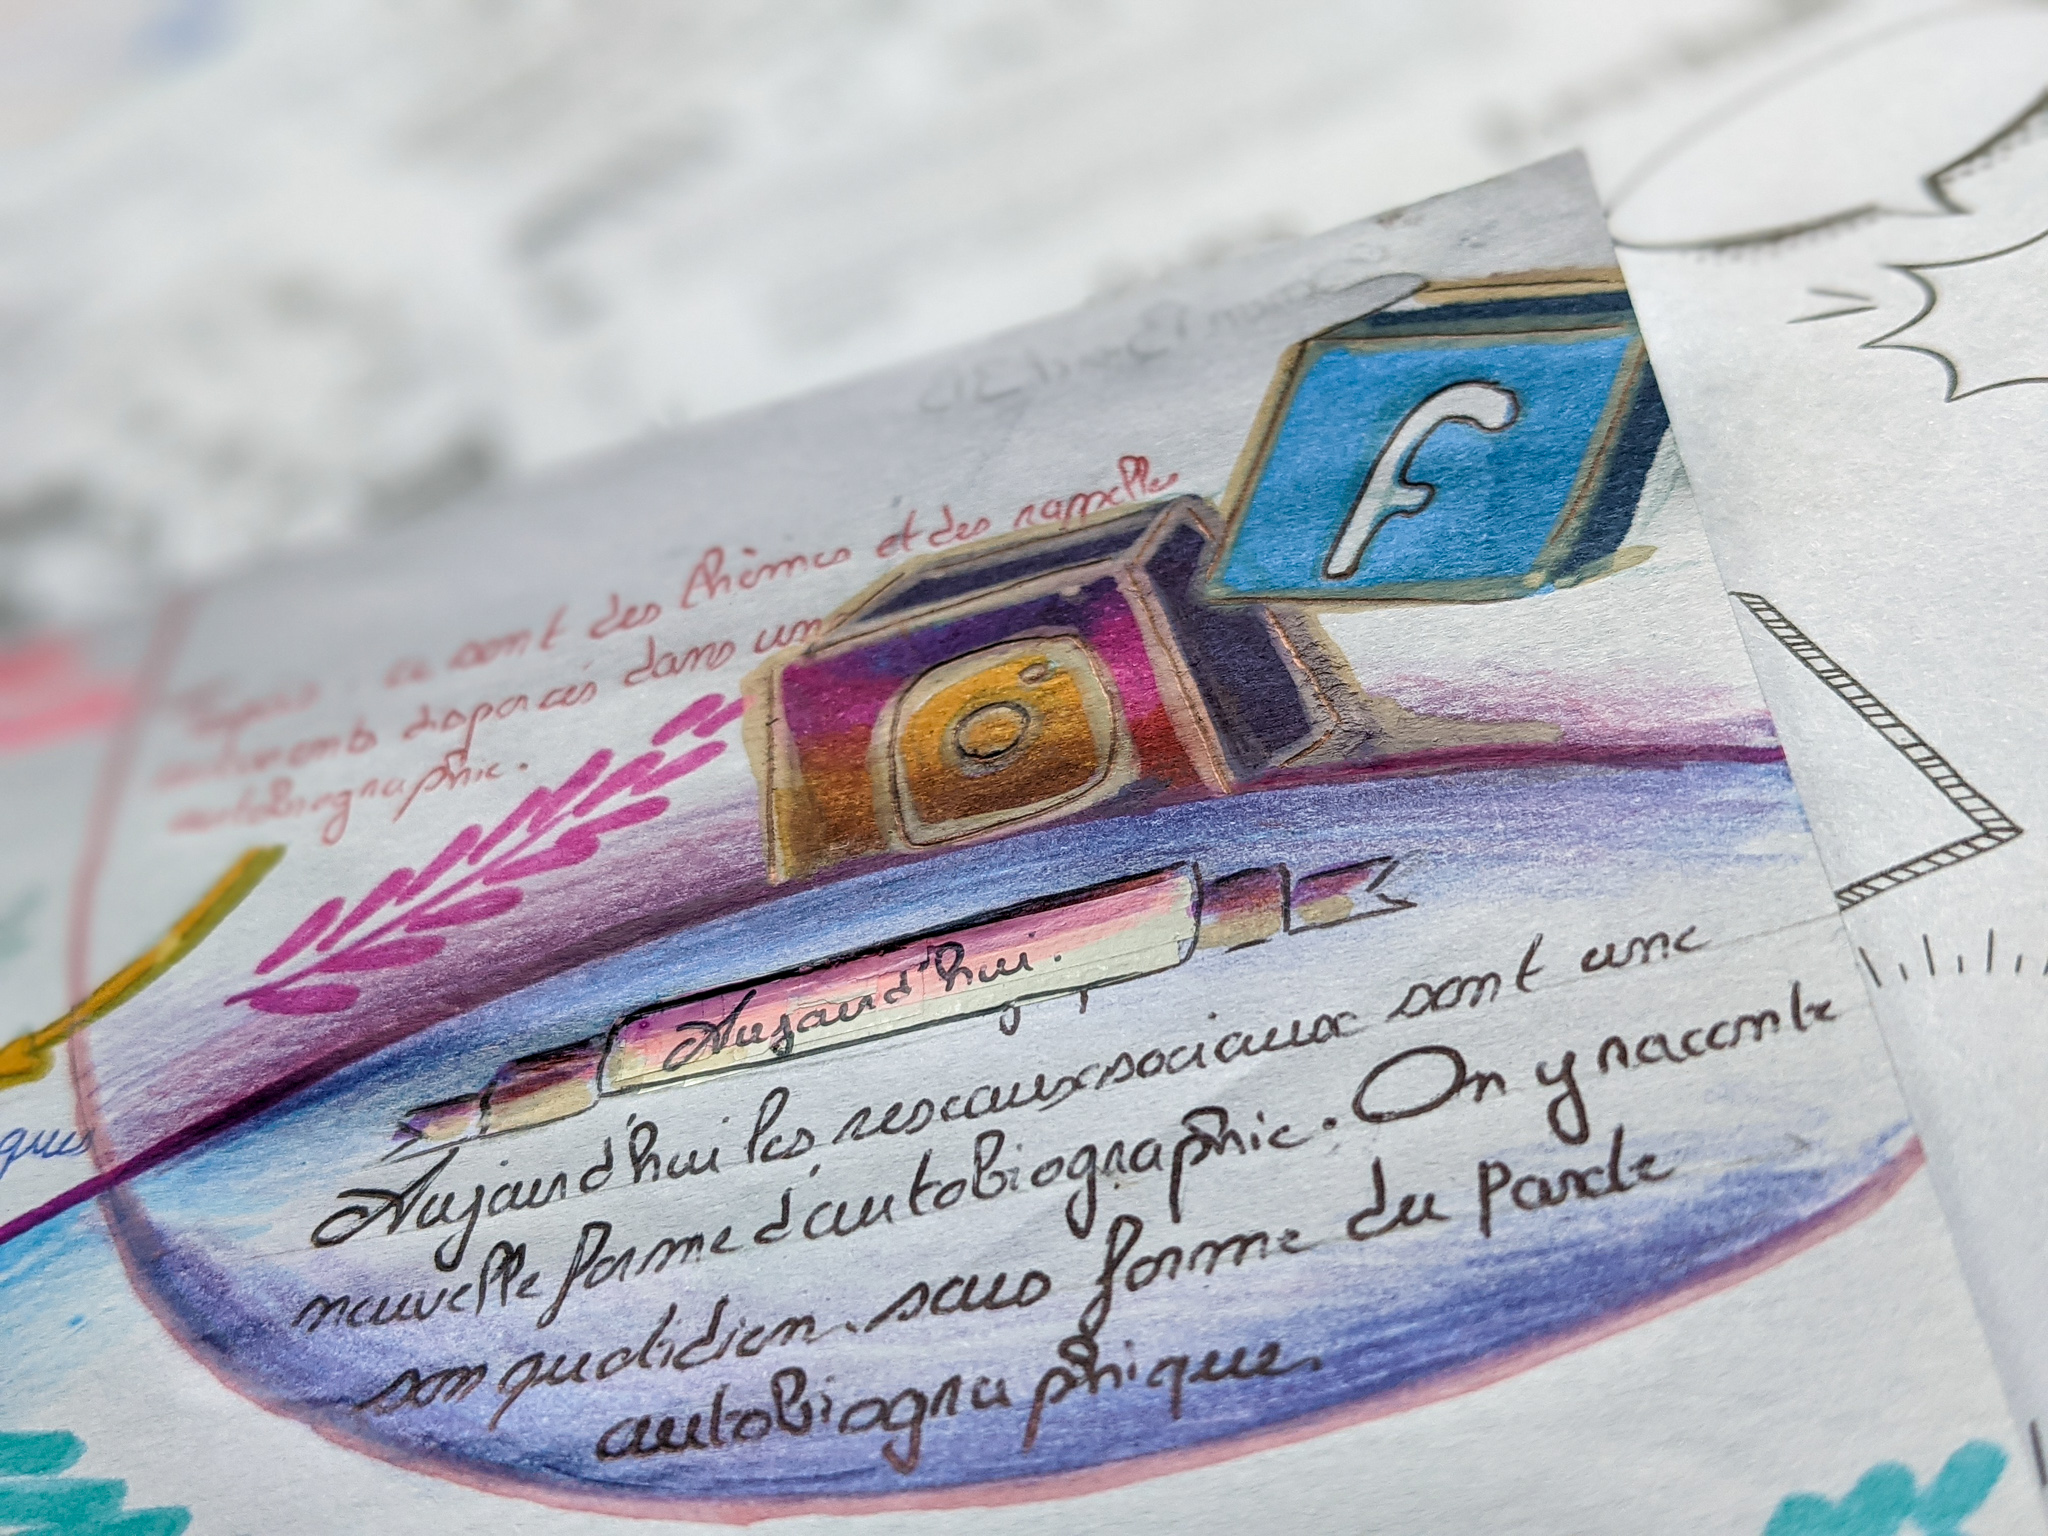 f
Topos : ce sont des thèmes et des rappelles
dispercés dans un
autobiographie.
Aujourd'hui.
ques
Aujourd'hui les reseaux sociaux sont une
nouvelle forme d'autobiographie. On y raconte
son quotidien. sous forme du pacte
autobiographique.